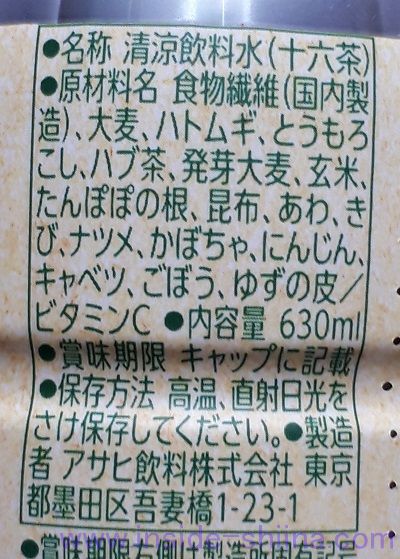 ●名称 清涼飲料水(十六茶)
●原材料名 食物繊維(国内製
造)、大麦、ハトムギ、とうもろ
こし、ハブ茶、発芽大麦、玄米、
たんぽぽの根、昆布、あわ、き
び、ナツメ、かぼちゃ、にんじん、
キャベツ、ごぼう、ゆずの皮/
ビタミンC ●内容量 630ml
●賞味期限 キャップに記載
●保存方法 高温、直射日光を
さけ保存してください。●製造
者 アサヒ飲料株式会社 東京
都墨田区吾妻橋1-23-1
●賞味期限右側は製造所固有
www.inside-shiina.com